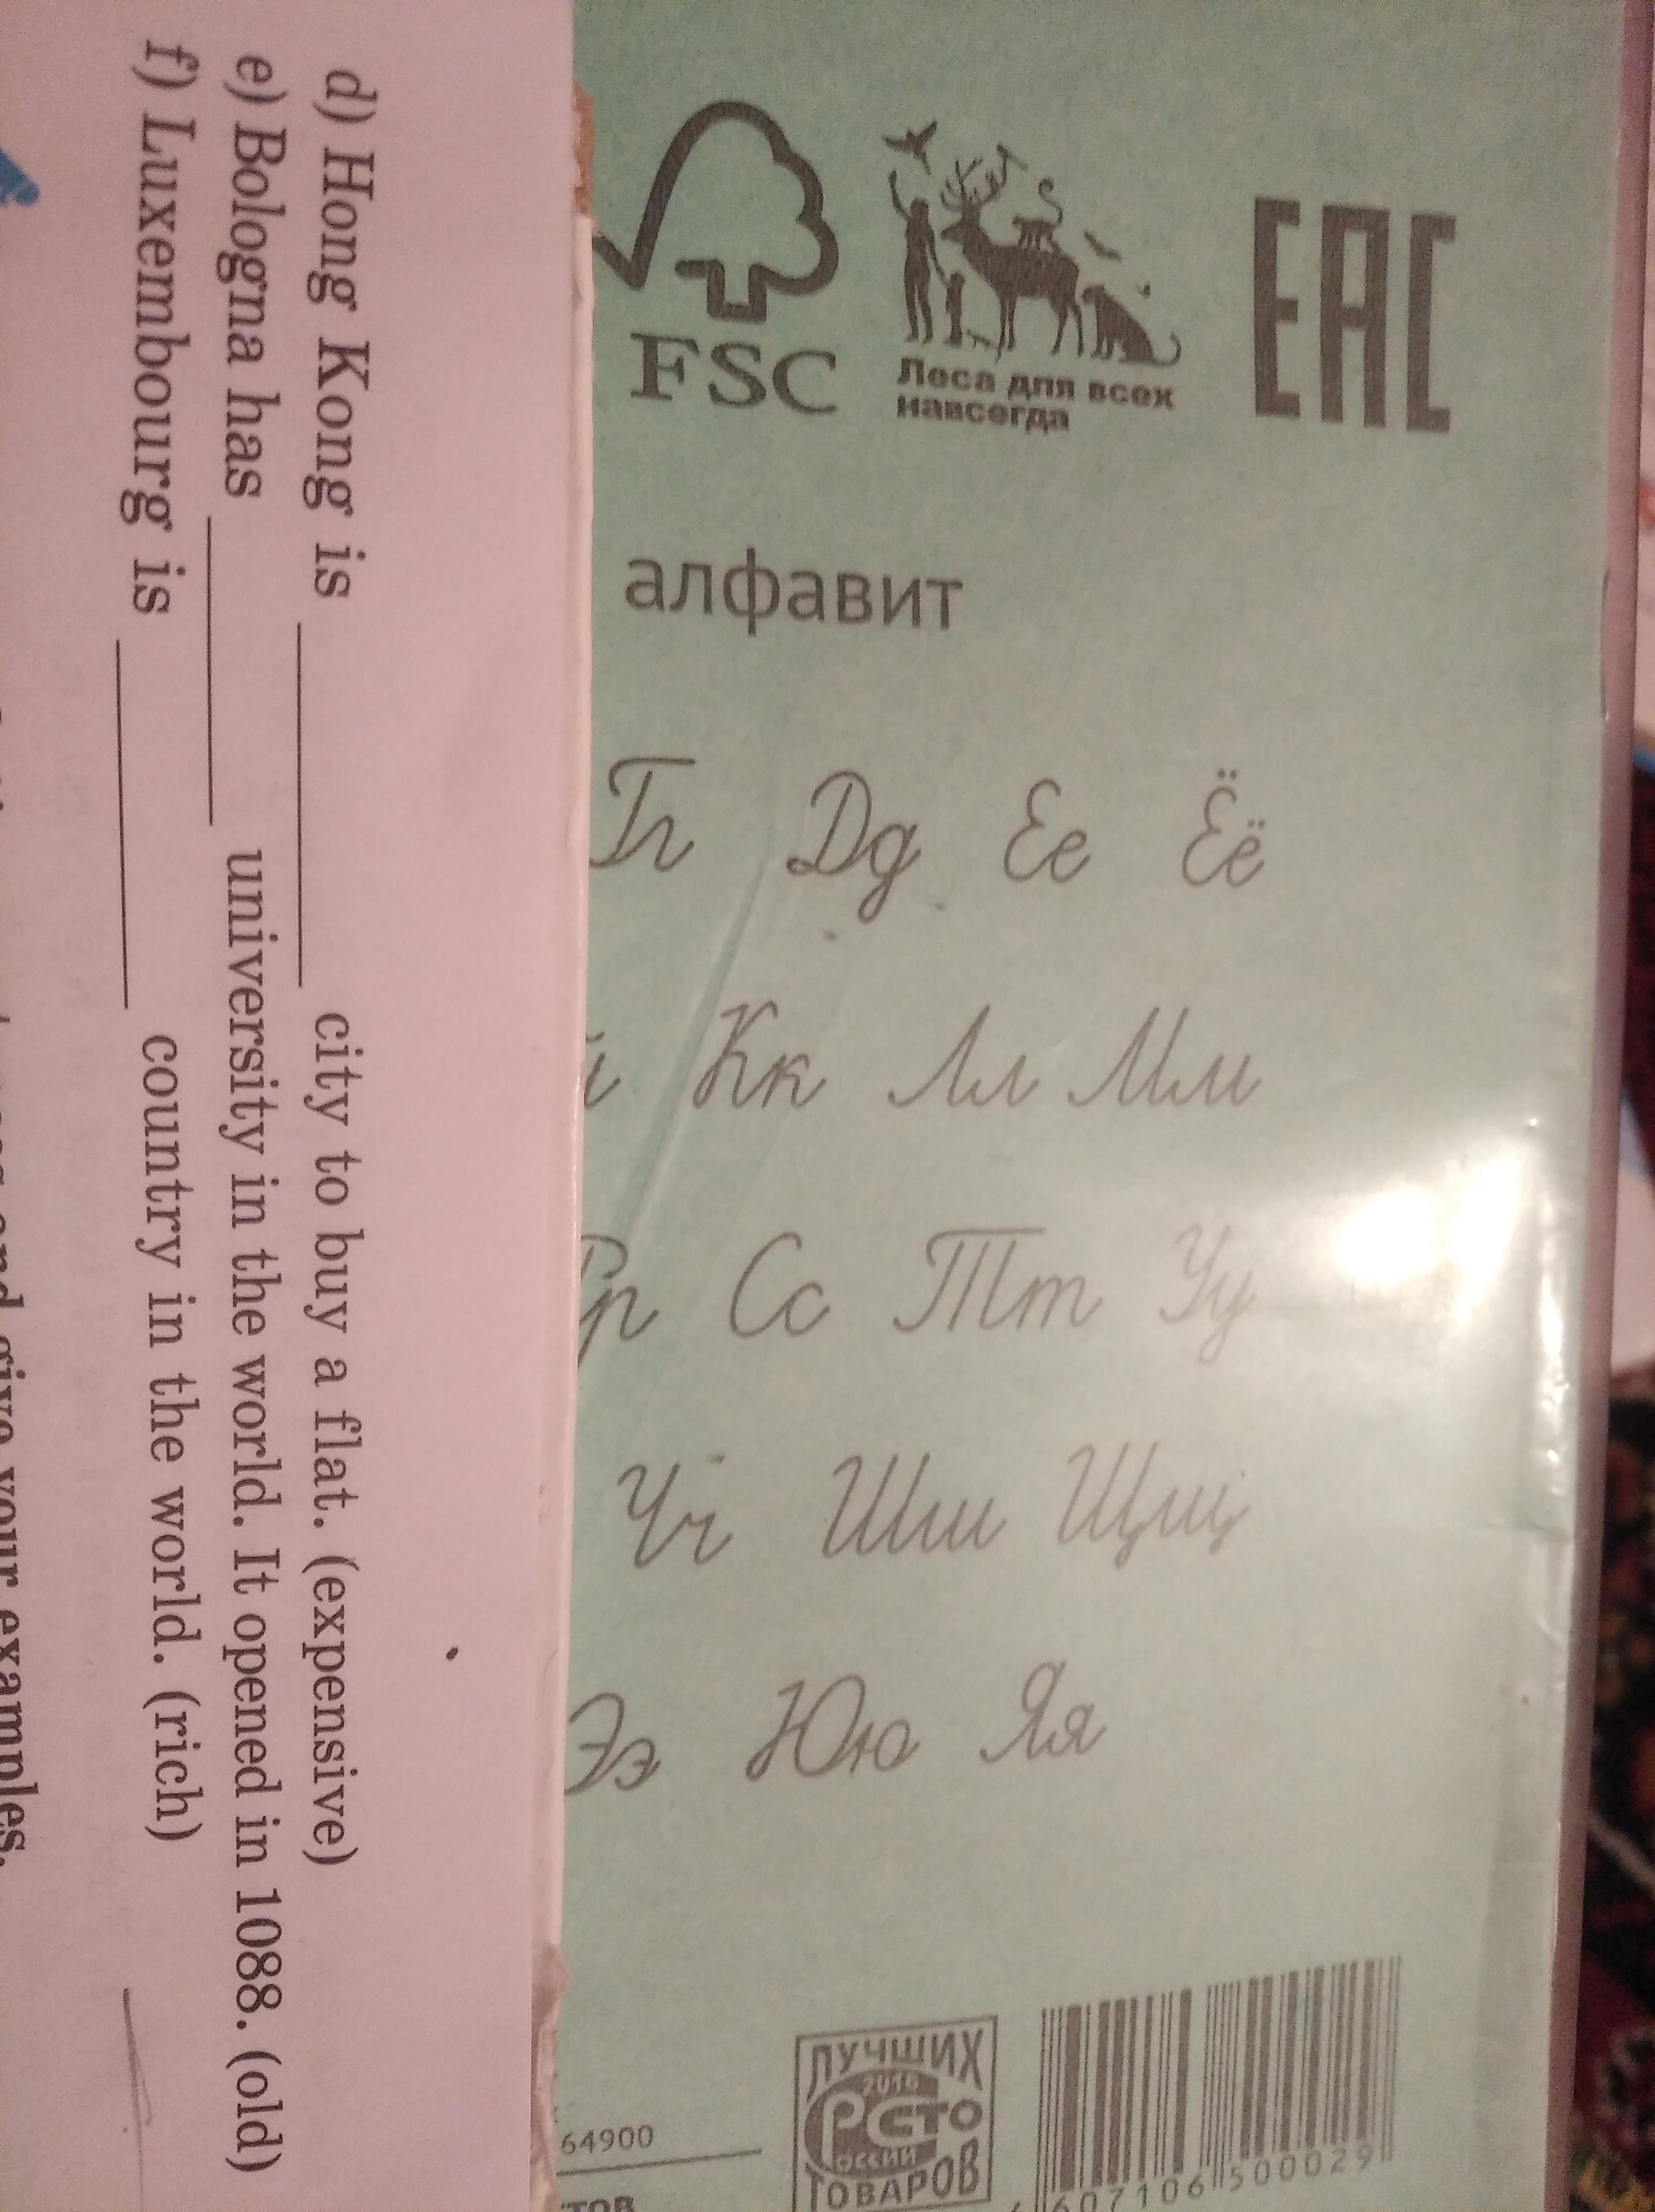 d) Hong Kong is ____________ city to buy a flat. (expensive)
e) Bologna has __________ university in the world. It opened in 1088. (old)
f) Luxembourg is ____________ country in the world. (rich)
give your examples.
FSC
Леса для всех
навсегда
EAC
алфавит
Гг Дд Ее Ёё
Кк Лл Мм
Рр Сс Тт Уу
Чч Шш Щщ
Ээ Юю Яя
64900
ЛУЧШИХ
2016
СТО
РОССИИ
ТОВАРОВ
607106 500029